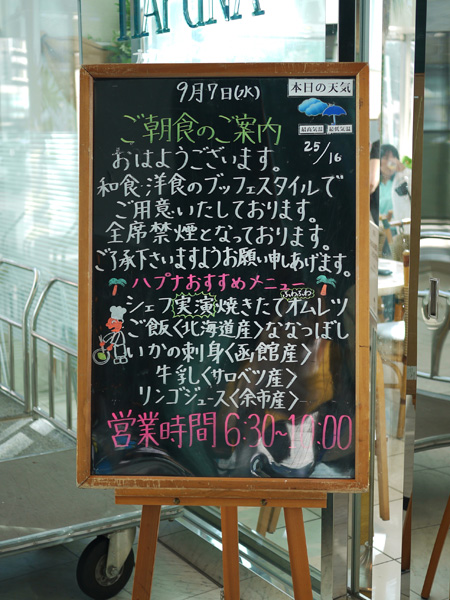 HAPUNA
9月7日(水)
本日の天気
最高気温 最低気温
25/16
ご朝食のご案内
おはようございます。
和食・洋食のブッフェスタイルで
ご用意いたしております。
全席禁煙となっております。
ご了承下さいますようお願い申しあげます。
ハプナおすすめメニュー
シェフ実演焼きたてふわふわオムレツ
ご飯〈北海道産〉ななつぼし
いかの刺身〈函館産〉
牛乳〈サロベツ産〉
リンゴジュース〈余市産〉
営業時間 6:30~10:00